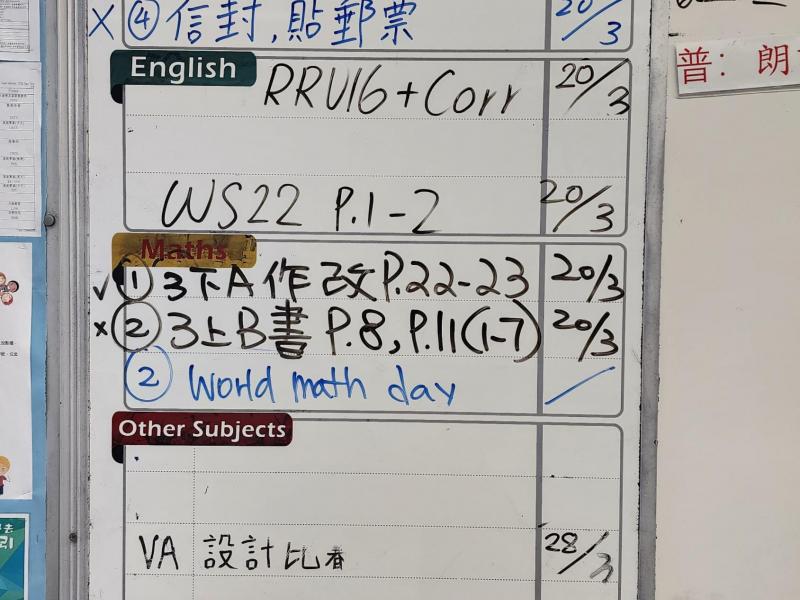 X ④ 信封,貼郵票 20/3
English
RRU16+Corr 20/3
WS22 P.1-2 20/3
Maths
✓ ① 3下A作改P.22-23 20/3
x ② 3上B書 P.8, P.11(1-7) 20/3
② World math day /
Other Subjects
VA 設計比 28/3
普: 朗